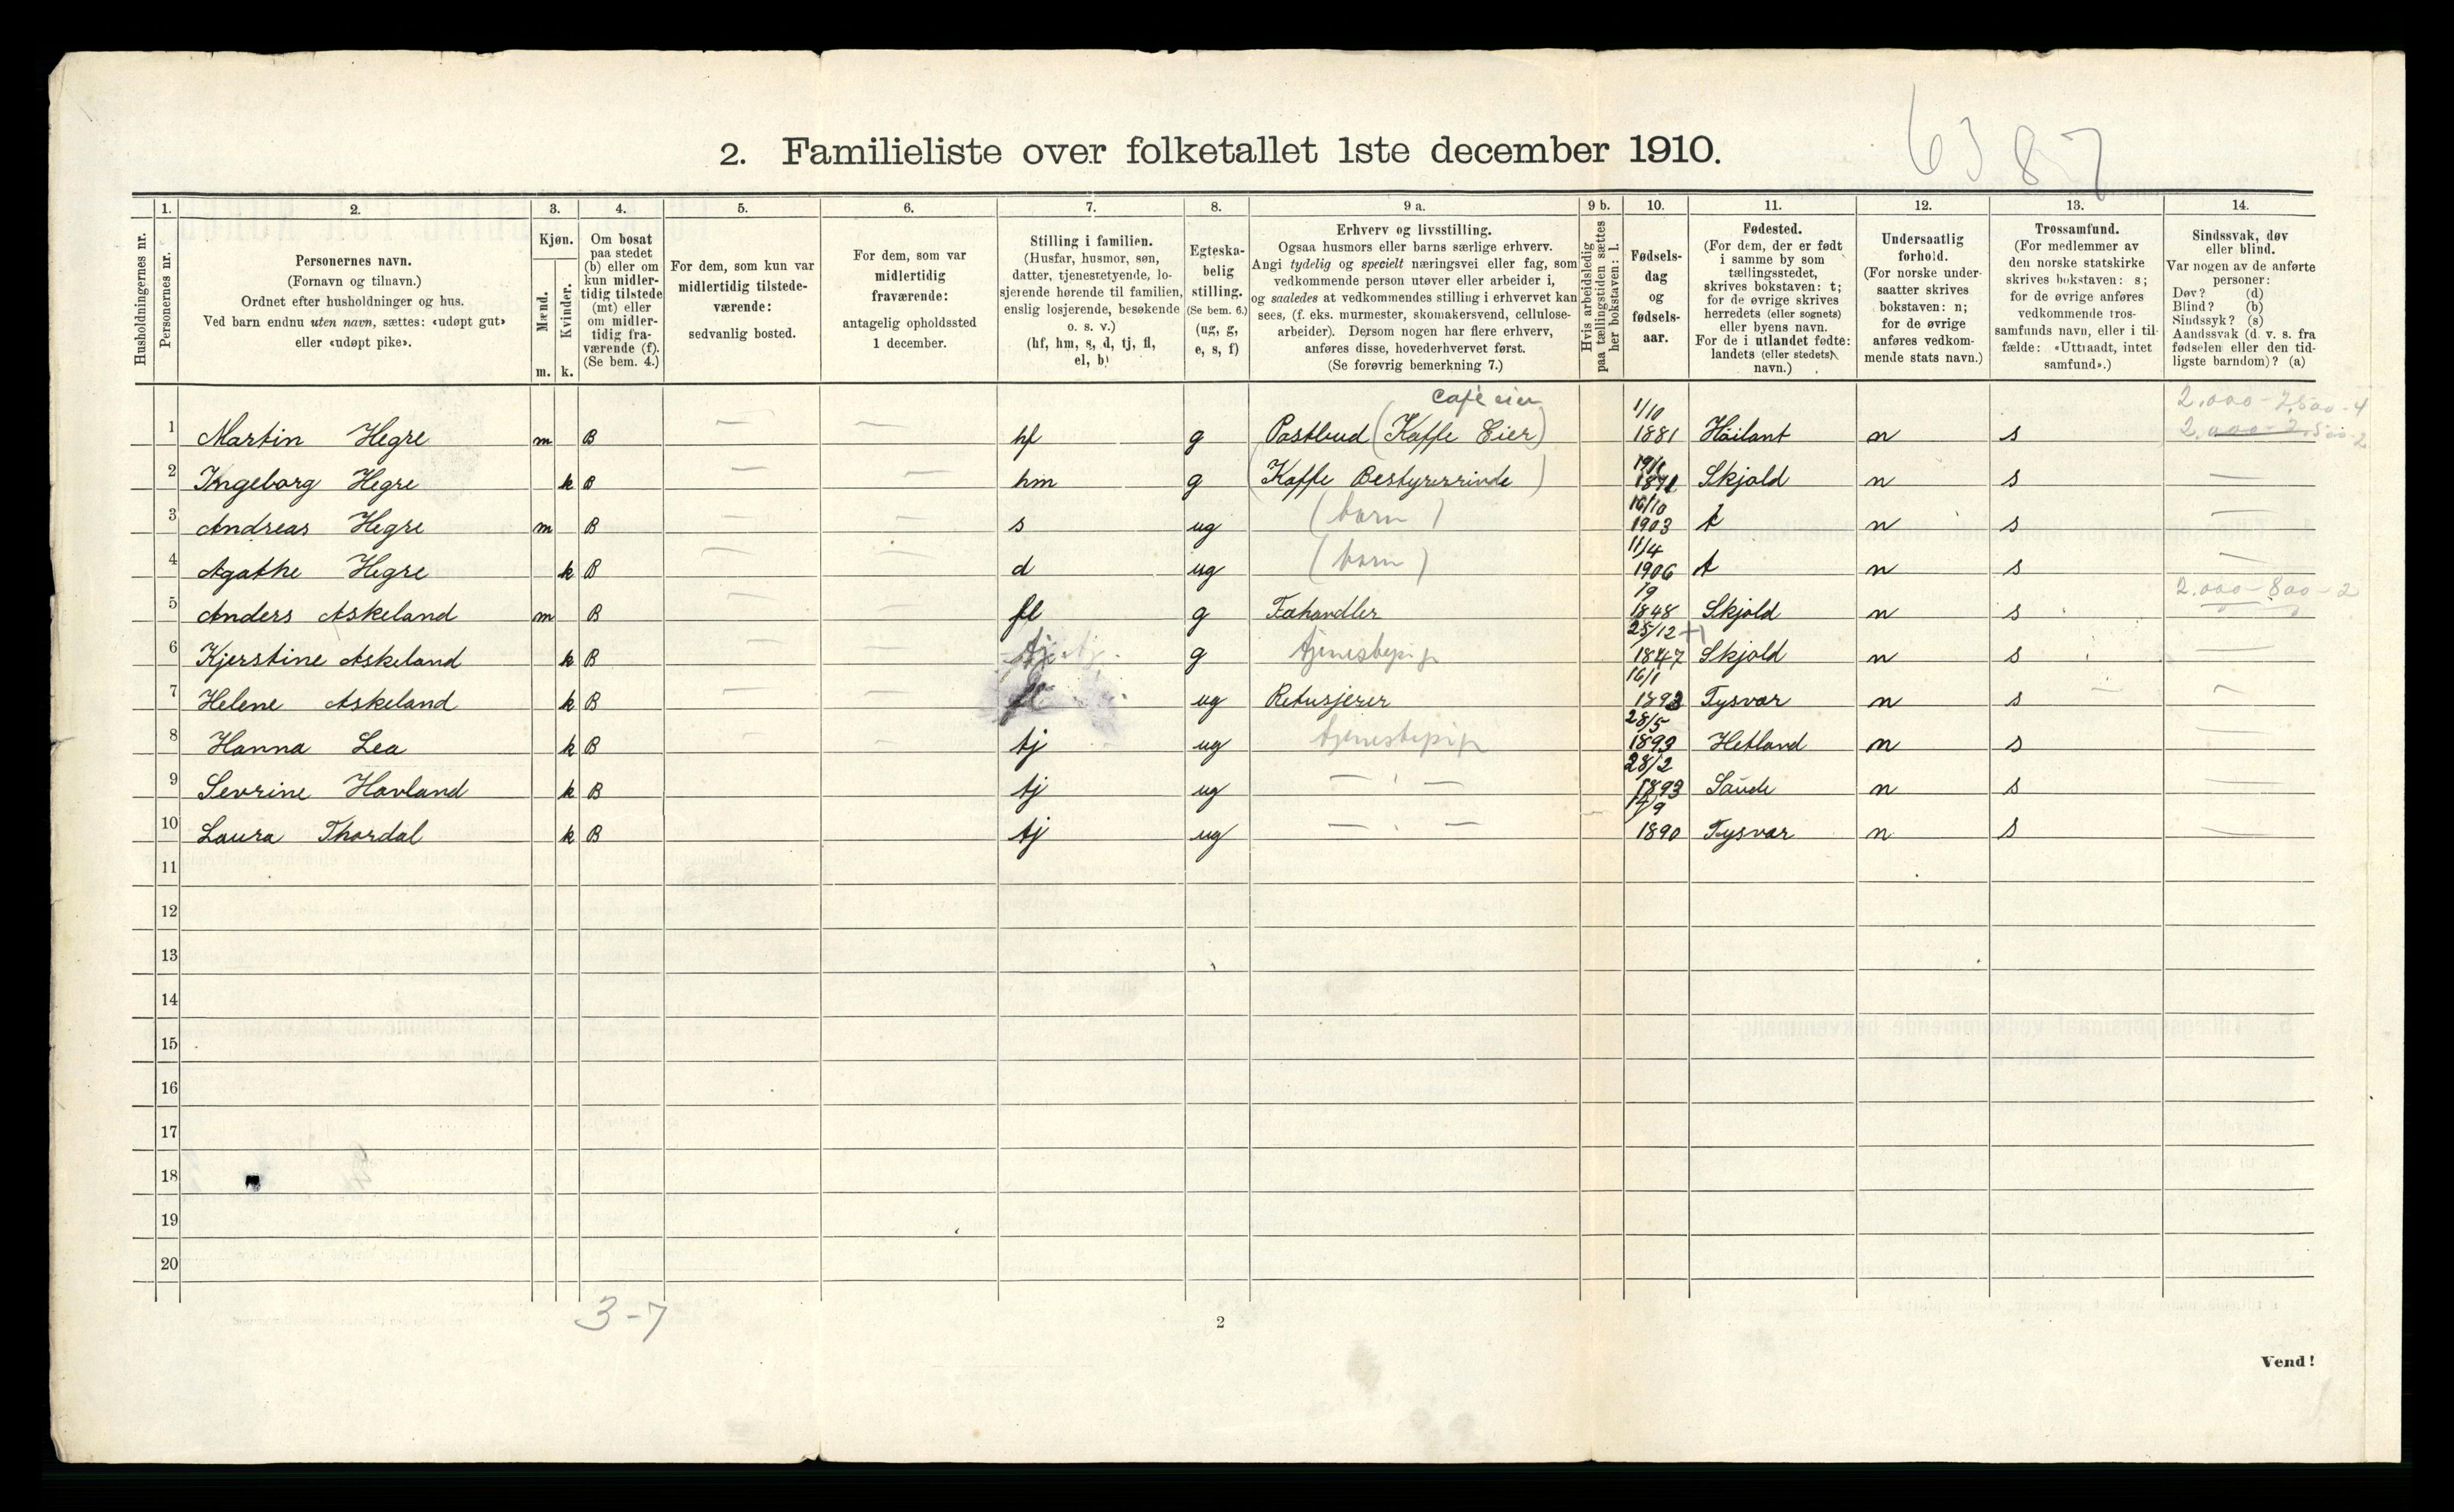 6387
2. Familieliste over folketallet 1ste december 1910.
1. 2. 3. 4. 5. 6. 7. 8. 9 a. 9 b. 10. 11. 12. 13. 14.
Husholdningernes nr.
Personernes nr.
Personernes navn.
(Fornavn og tilnavn.)
Ordnet efter husholdninger og hus.
Ved barn endnu uten navn, sættes: «udøpt gut»
eller «udøpt pike».
Kjøn.
Mænd.
Kvinder.
m. k.
Om bosat
paa stedet
(b) eller om
kun midler-
tidig tilstede
(mt) eller
om midler-
tidig fra-
værende (f).
(Se bem. 4.)
For dem, som kun var
midlertidig tilstede-
værende:
sedvanlig bosted.
For dem, som var
midlertidig
fraværende:
antagelig opholdssted
1 december.
Stilling i familien.
(Husfar, husmor, søn,
datter, tjenestetyende, lo-
sjerende hørende til familien,
enslig losjerende, besøkende
o. s. v.)
(hf, hm, s, d, tj, fl,
el, b)
Egteska-
belig
stilling.
(Se bem. 6.)
(ug, g,
e, s, f)
Erhverv og livsstilling.
Ogsaa husmors eller barns særlige erhverv.
Angi tydelig og specielt næringsvei eller fag, som
vedkommende person utøver eller arbeider i,
og saaledes at vedkommendes stilling i erhvervet kan
sees, (f. eks. murmester, skomakersvend, cellulose-
arbeider). Dersom nogen har flere erhverv,
anføres disse, hovederhvervet først.
(Se forøvrig bemerkning 7.)
Hvis arbeidsledig
paa tællingstiden sættes
her bokstaven: l.
Fødsels-
dag
og
fødsels-
aar.
Fødested.
(For dem, der er født
i samme by som
tællingsstedet,
skrives bokstaven: t;
for de øvrige skrives
herredets (eller sognets)
eller byens navn.
For de i utlandet fødte:
landets (eller stedets)
navn.)
Undersaatlig
forhold.
(For norske under-
saatter skrives
bokstaven: n;
for de øvrige
anføres vedkom-
mende stats navn.)
Trossamfund.
(For medlemmer av
den norske statskirke
skrives bokstaven: s;
for de øvrige anføres
vedkommende tros-
samfunds navn, eller i til-
fælde: «Uttraadt, intet
samfund».)
Sindssvak, døv
eller blind.
Var nogen av de anførte
personer:
Døv? (d)
Blind? (b)
Sindssyk? (s)
Aandssvak (d. v. s. fra
fødselen eller den tid-
ligste barndom)? (a)
Café eier 1/10 2.000-7.500-4
1 Martin Hegre m B — — hf g Postbud (Kaffe Eier) 1881 Höilant n s 2.000-2.500-2
2 Ingeborg Hegre k B — — hm g (Kaffe Bestyrerrinde) Skjold n s —
16/10
3 Andreas Hegre m B — — s ug (barn) 1903 t n s —
11/4
4 Agathe Hegre k B — — d ug (barn) 1906 t n s —
1/9 2.000-800-2
5 Anders Askeland m B — — fl g Fæhandler 1848 Skjold n s
25/12
6 Kjerstine Askeland k B — — tj g tjenestepige 1847 Skjold n s —
16/1
7 Helene Askeland k B — — fl ug Retusjerer 1893 Tysvær n s —
28/5
8 Hanna Lea k B — — tj ug tjenestepige 1893 Hetland n s —
28/2
9 Sevrine Havland k B tj ug — " — 1893 Saude n s —
14/9
10 Laura Thordal k B tj ug — " — 1890 Tysvær n s —
11
12
13
14
15
16
17
18
19
20
3-7
2
Vend!